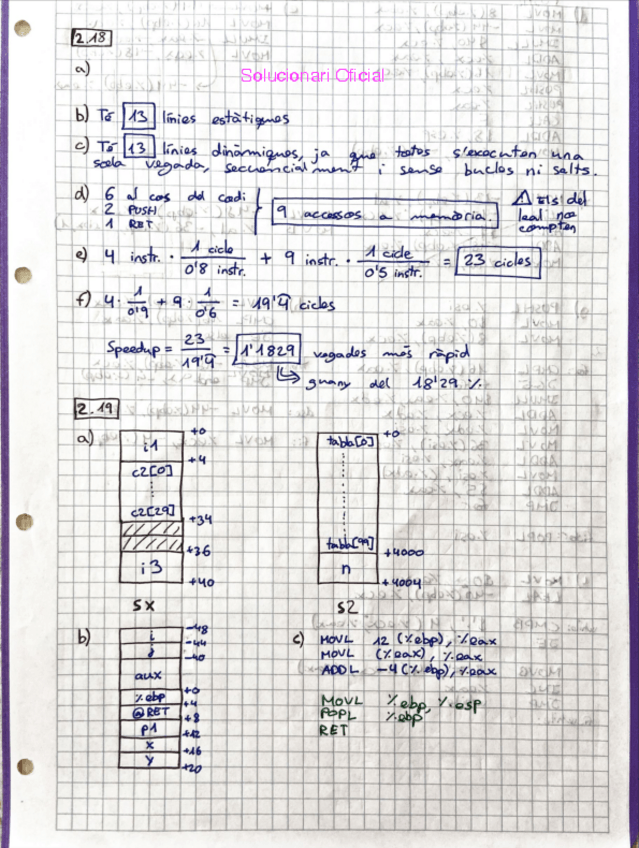 2.18
a)
Solucionari Oficial
b) Té 13 línies estàtiques
c) Té 13 línies dinàmiques, ja que totes s'executen una
sola vegada, seqüencialment i sense bucles ni salts.
d) 6 al cos del codi
2 PUSH
1 RET
9 accessos a memòria.
⚠ Els del
leal no
compten
e) 4 instr. · 1 cicle / 0'8 instr. + 9 instr. · 1 cicle / 0'5 instr. = 23 cicles
f) 4 · 1/0'9 + 9 · 1/0'6 = 19'4 cicles
Speedup = 23/19'4 = 1'1829 vegades més ràpid
↳ guany del 18'29 %
2.19
a)
+0
i1
+4
c2[0]
c2[29]
+34
+36
i3
+40
SX
+0
tabla[0]
tabla[99]
+4000
n
+4004
S2
b)
-48
i
-44
j
-40
aux
+0
%ebp
+4
@RET
+8
p1
+12
x
+16
y
+20
c) MOVL 12(%ebp), %eax
MOVL (%eax), %eax
ADDL -4(%ebp), %eax
MOVL %ebp, %esp
POPL %ebp
RET